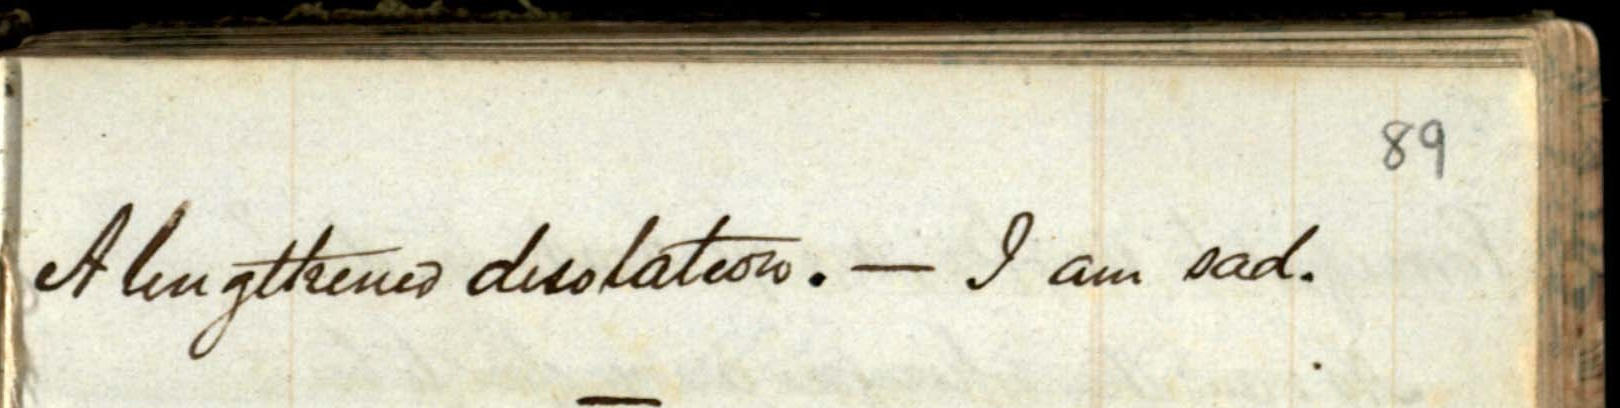 89
A lengthened desolation. — I am sad.